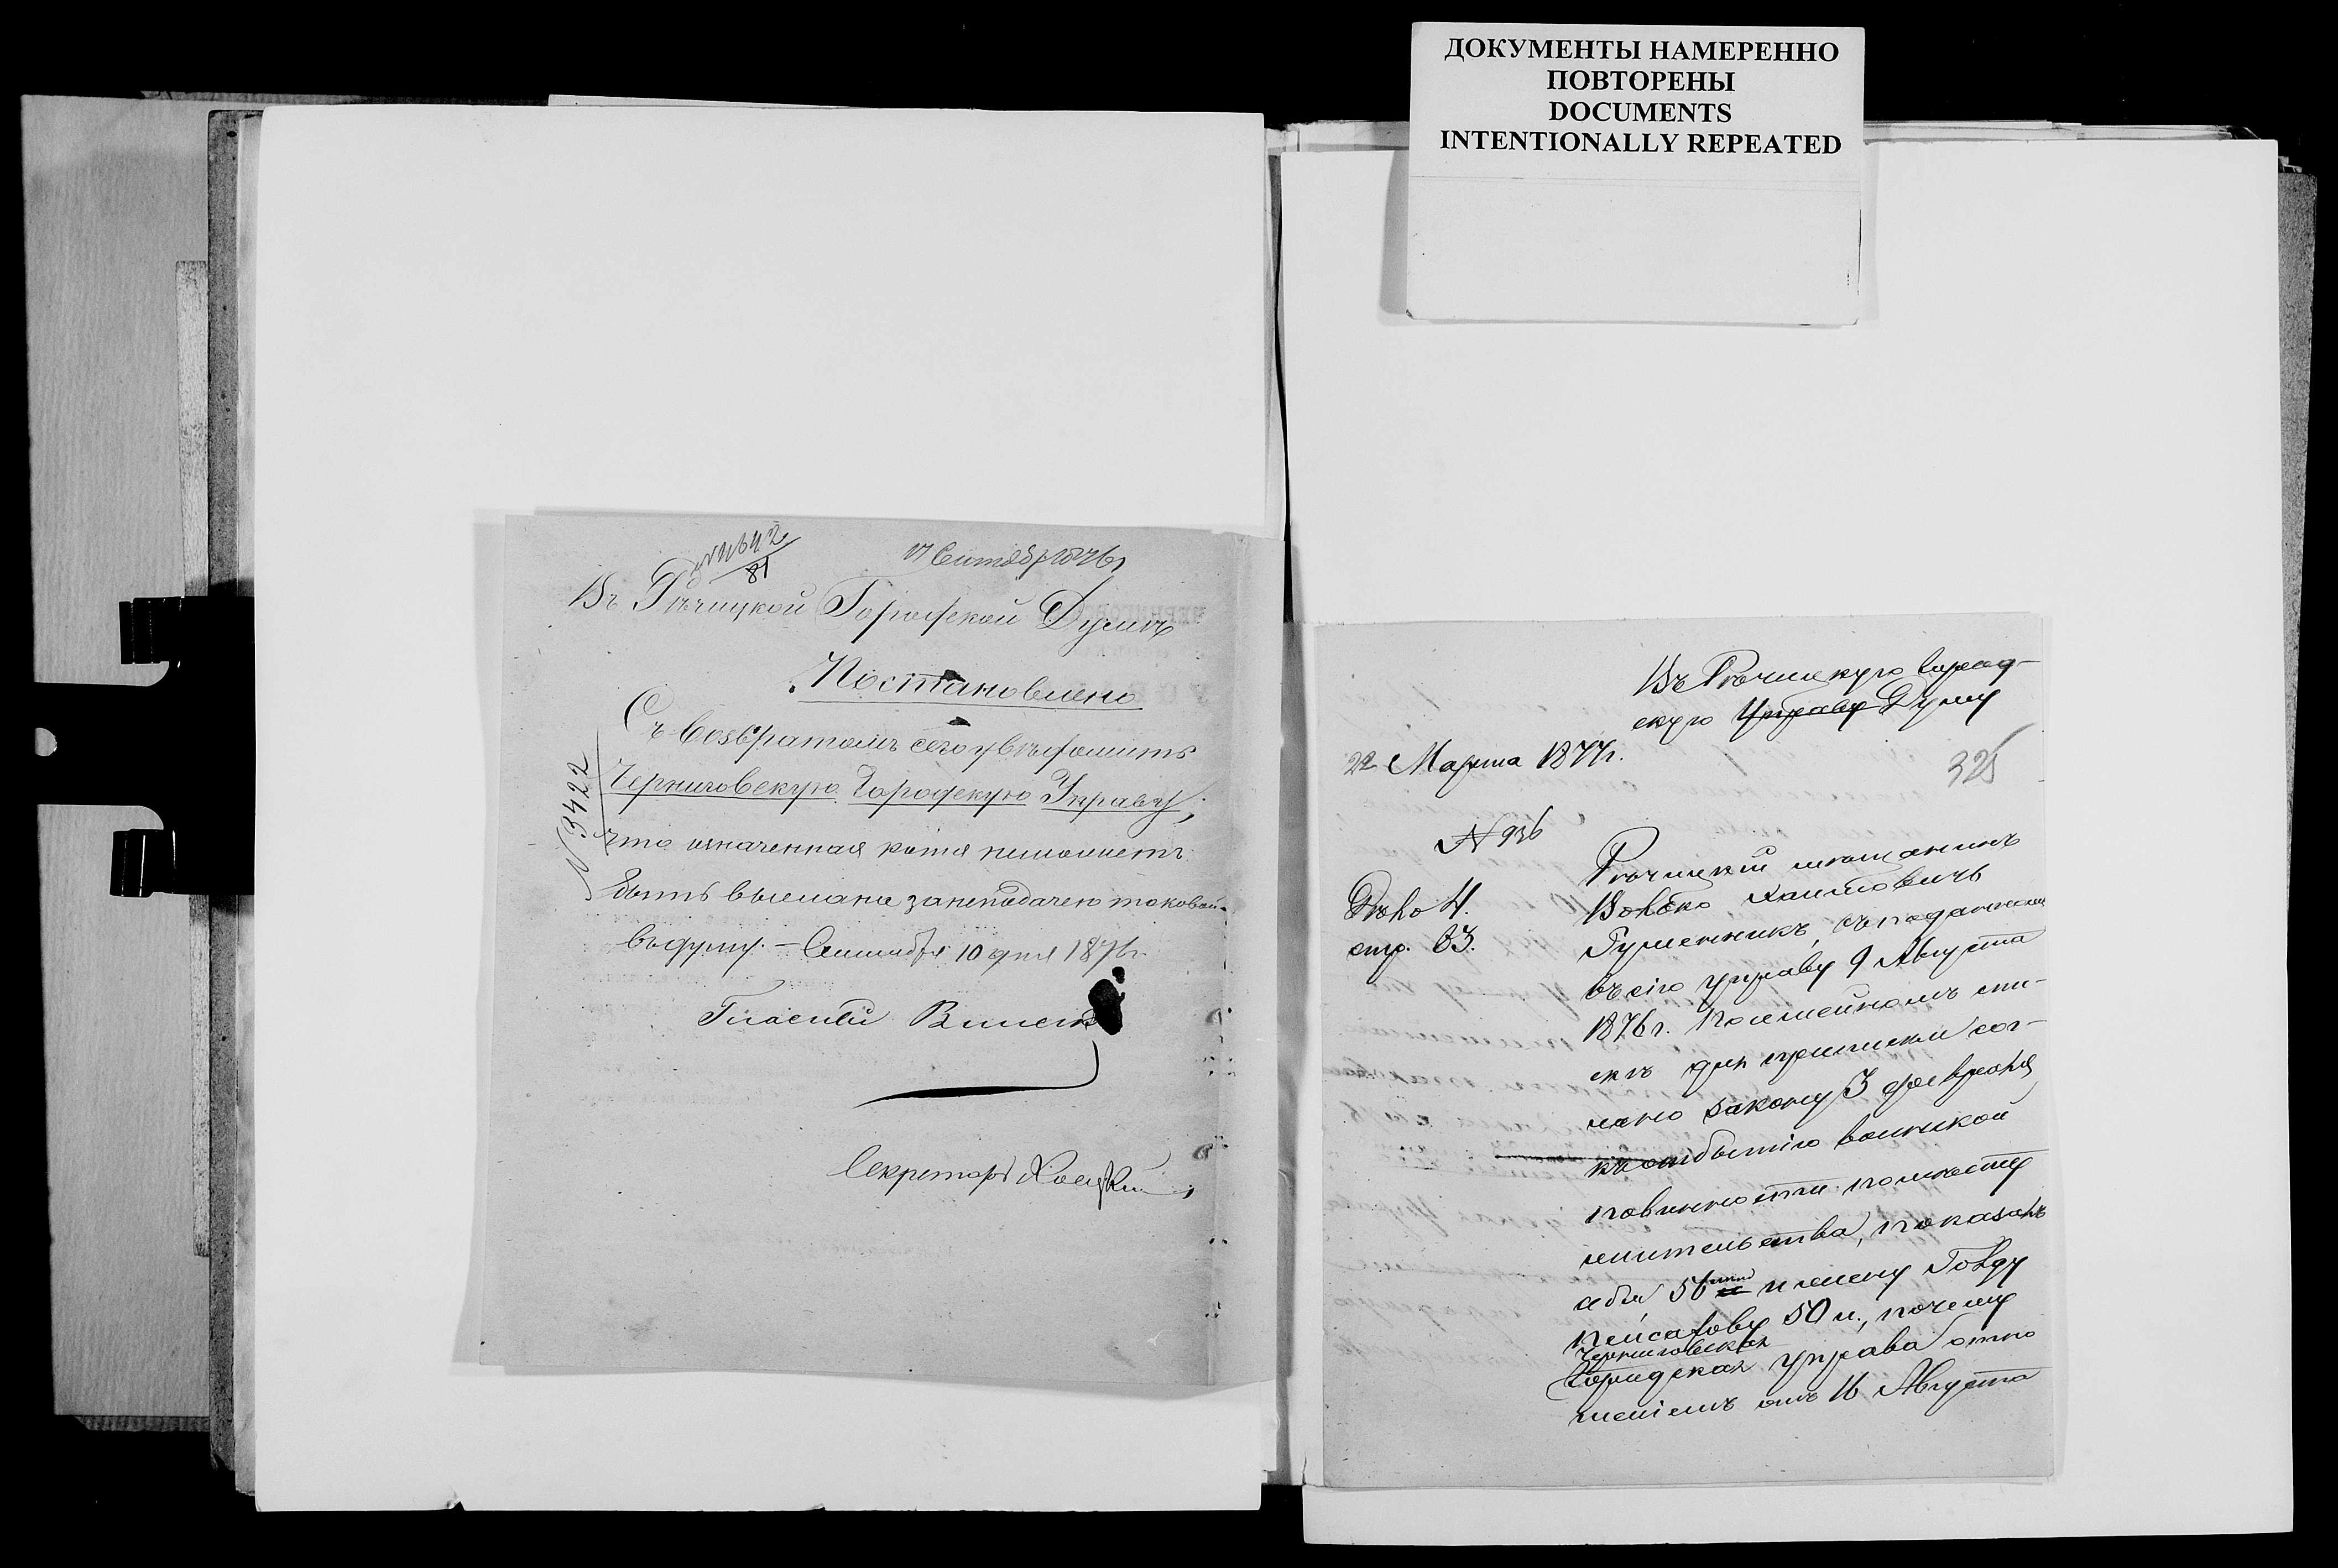 ДОКУМЕНТЫ НАМЕРЕННО
ПОВТОРЕНЫ
DOCUMENTS
INTENTIONALLY REPEATED
17 Сентября 1876
Въ Рѣчицкой Городской Думѣ
Постановлено
Съ возвратомъ сего увѣдомить
Черниговскую Городскую Управу,
что означенная копія неможетъ
быть выслана за неподачею таковой
въ думу. — Сентября 10 дня 1876 г.
N 3422
Гласный
Секретарь
Въ Рѣчицкую Город-
скую Управу Думу
22 Марта 1877 г.
325
N 936
Дѣло 4.
стр. 83.
Рѣчицкій мѣщанинъ
Волько Хаимовичъ
Гуменникъ, въ поданномъ
въ сію управу 9 Августа
1876 г. посемейномъ спи-
скѣ для приписки сог-
ласно закону 3 февраля
къ отбытію воинской
повинности по мѣсту
жительства, показалъ
себя 56 и жену Голду
Пейсахову 50 л., почему
Черниговская
Городская управа отно
шеніемъ отъ 16 Августа